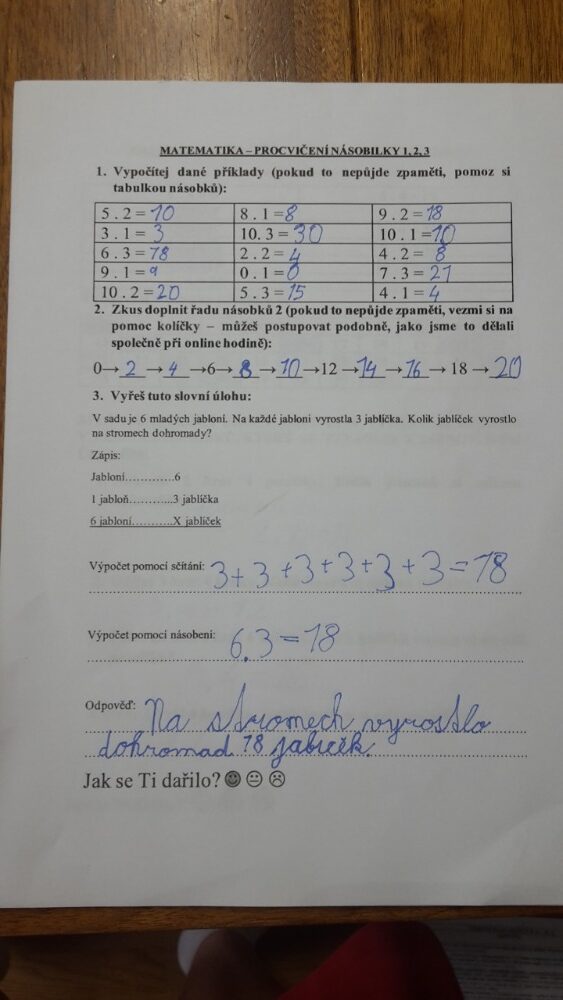 MATEMATIKA – PROCVIČENÍ NÁSOBILKY 1, 2, 3
1. Vypočítej dané příklady (pokud to nepůjde zpaměti, pomoz si
tabulkou násobků):
5 . 2 = 10 8 . 1 = 8 9 . 2 = 18
3 . 1 = 3 10. 3 = 30 10 . 1 = 10
6 . 3 = 18 2 . 2 = 4 4 . 2 = 8
9 . 1 = 9 0 . 1 = 0 7 . 3 = 21
10 . 2 = 20 5 . 3 = 15 4 . 1 = 4
2. Zkus doplnit řadu násobků 2 (pokud to nepůjde zpaměti, vezmi si na
pomoc kolíčky – můžeš postupovat podobně, jako jsme to dělali
společně při online hodině):
0→ 2 → 4 →6→ 8 → 10 →12 → 14 → 16 → 18 → 20
3. Vyřeš tuto slovní úlohu:
V sadu je 6 mladých jabloní. Na každé jabloni vyrostla 3 jablíčka. Kolik jablíček vyrostlo
na stromech dohromady?
Zápis:
Jabloní............6
1 jabloň...........3 jablíčka
6 jabloní..........X jablíček
Výpočet pomocí sčítání: 3+3+3+3+3+3=18
Výpočet pomocí násobení: 6.3=18
Odpověď: Na stromech vyrostlo
dohromad 18 jablček.
Jak se Ti dařilo? ☺ 😐 ☹